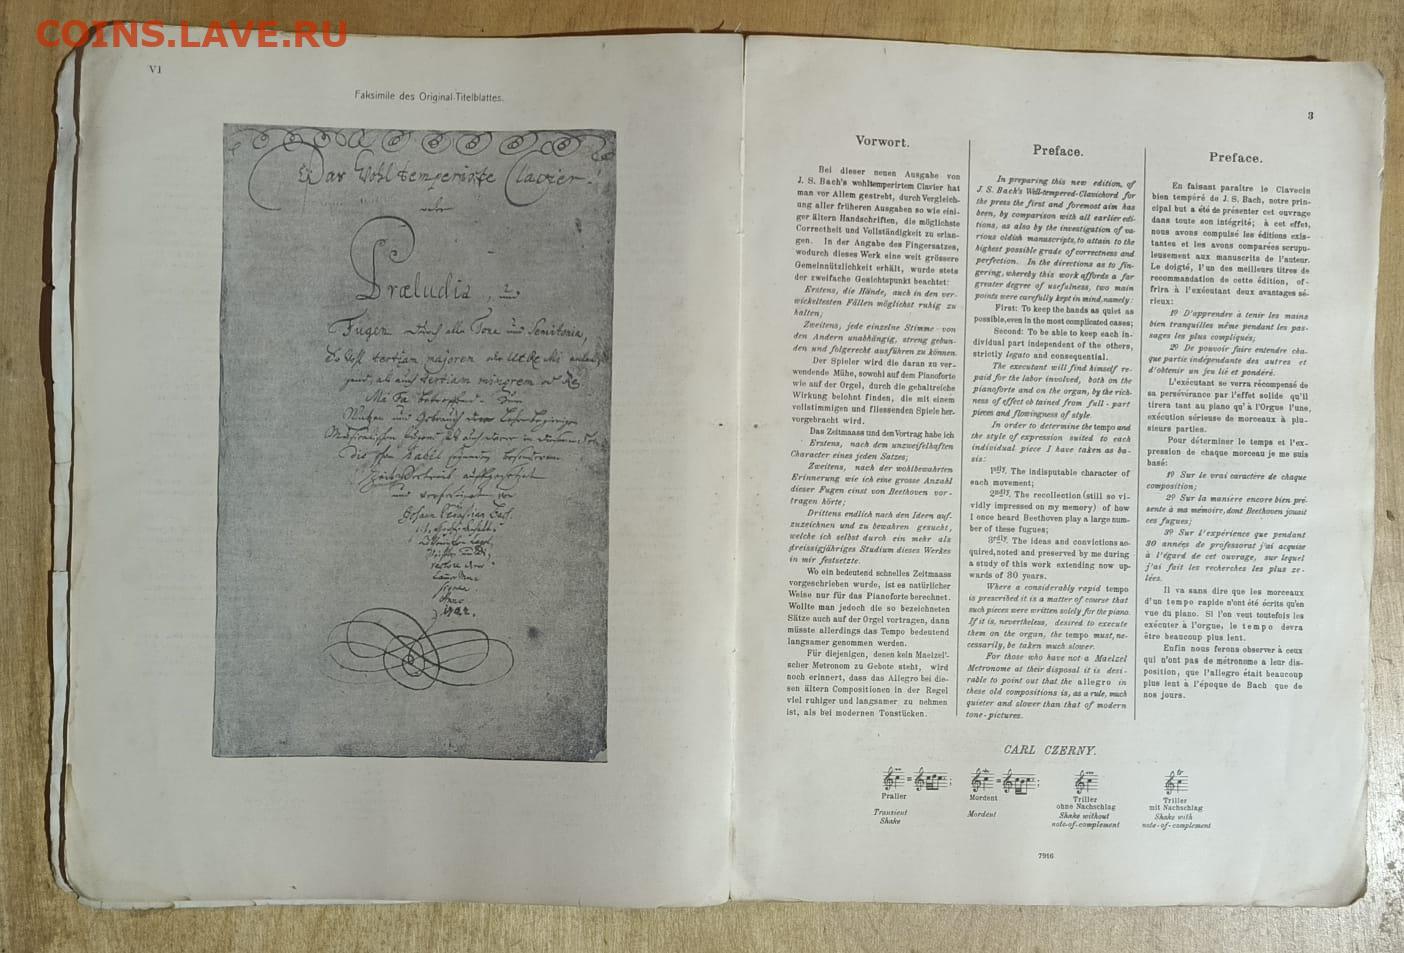 COINS.LAVE.RU
VI
Faksimile des Original-Titelblattes.
Das Wohltemperirte Clavier.
oder
Præludia, und
Fugen durch alle Tone und Semitonia,
tertiam majorem
tertiam minorem
Johann Sebastian Bach.
Anno
1722.
3
Vorwort.
Bei dieser neuen Ausgabe von
J. S. Bach's wohltemperirtem Clavier hat
man vor Allem gestrebt, durch Vergleich-
ung aller früheren Ausgaben so wie eini-
ger ältern Handschriften, die möglichste
Correctheit und Vollständigkeit zu erlan-
gen. In der Angabe des Fingersatzes,
wodurch dieses Werk eine weit grössere
Gemeinnützlichkeit erhält, wurde stets
der zweifache Gesichtspunkt beachtet:
Erstens, die Hände, auch in den ver-
wickeltesten Fällen möglichst ruhig zu
halten;
Zweitens, jede einzelne Stimme von
den Andern unabhängig, streng gebun-
den und folgerecht ausführen zu können.
Der Spieler wird die daran zu ver-
wendende Mühe, sowohl auf dem Pianoforte
wie auf der Orgel, durch die gehaltreiche
Wirkung belohnt finden, die mit einem
vollstimmigen und fliessenden Spiele her-
vorgebracht wird.
Das Zeitmaass und den Vortrag habe ich
Erstens, nach dem unzweifelhaften
Character eines jeden Satzes;
Zweitens, nach der wohlbewahrten
Erinnerung wie ich eine grosse Anzahl
dieser Fugen einst von Beethoven vor-
tragen hörte;
Drittens endlich nach den Ideen auf-
zuzeichnen und zu bewahren gesucht,
welche ich selbst durch ein mehr als
dreissigjähriges Studium dieses Werkes
in mir festsetzte.
Wo ein bedeutend schnelles Zeitmaass
vorgeschrieben wurde, ist es natürlicher
Weise nur für das Pianoforte berechnet.
Wollte man jedoch die so bezeichneten
Sätze auch auf der Orgel vortragen, dann
müsste allerdings das Tempo bedeutend
langsamer genommen werden.
Für diejenigen, denen kein Maelzel'-
scher Metronom zu Gebote steht, wird
noch erinnert, dass das Allegro bei die-
sen ältern Compositionen in der Regel
viel ruhiger und langsamer zu nehmen
ist, als bei modernen Tonstücken.
Preface.
In preparing this new edition, of
J. S. Bach's Well-tempered-Clavichord for
the press the first and foremost aim has
been, by comparison with all earlier edi-
tions, as also by the investigation of va-
rious oldish manuscripts, to attain to the
highest possible grade of correctness and
perfection. In the directions as to fin-
gering, whereby this work affords a far
greater degree of usefulness, two main
points were carefully kept in mind, namely:
First: To keep the hands as quiet as
possible, even in the most complicated cases;
Second: To be able to keep each in-
dividual part independent of the others,
strictly legato and consequential.
The executant will find himself re-
paid for the labor involved, both on the
pianoforte and on the organ, by the rich-
ness of effect obtained from full-part
pieces and flowingness of style.
In order to determine the tempo and
the style of expression suited to each
individual piece I have taken as ba-
sis:
1stly. The indisputable character of
each movement;
2ndly. The recollection (still so vi-
vidly impressed on my memory) of how
I once heard Beethoven play a large num-
ber of these fugues;
3rdly. The ideas and convictions ac-
quired, noted and preserved by me during
a study of this work extending now up-
wards of 30 years.
Where a considerably rapid tempo
is prescribed it is a matter of course that
such pieces were written solely for the piano.
If it is, nevertheless, desired to execute
them on the organ, the tempo must, ne-
cessarily, be taken much slower.
For those who have not a Maelzel
Metronome at their disposal it is desi-
rable to point out that the allegro in
these old compositions is, as a rule, much
quieter and slower than that of modern
tone-pictures.
Preface.
En faisant paraître le Clavecin
bien tempéré de J. S. Bach, notre prin-
cipal but a été de présenter cet ouvrage
dans toute son intégrité; à cet effet,
nous avons compulsé les éditions exis-
tantes et les avons comparées scrupu-
leusement aux manuscrits de l'auteur.
Le doigté, l'un des meilleurs titres de
recommandation de cette édition, of-
frira à l'exécutant deux avantages sé-
rieux:
1º D'apprendre à tenir les mains
bien tranquilles même pendant les pas-
sages les plus compliqués;
2º De pouvoir faire entendre cha-
que partie indépendante des autres et
d'obtenir un jeu lié et pondéré.
L'exécutant se verra récompensé de
sa persévérance par l'effet solide qu'il
tirera tant au piano qu'à l'Orgue l'une,
exécution sérieuse de morceaux à plu-
sieurs parties.
Pour déterminer le temps et l'ex-
pression de chaque morceau je me suis
basé:
1º Sur le vrai caractère de chaque
composition;
2º Sur la manière encore bien pré-
sente à ma mémoire, dont Beethoven jouait
ces fugues;
3º Sur l'expérience que pendant
30 années de professorat j'ai acquise
à l'égard de cet ouvrage, sur lequel
j'ai fait les recherches les plus ze-
lées.
Il va sans dire que les morceaux
d'un tempo rapide n'ont été écrits qu'en
vue du piano. Si l'on veut toutefois les
exécuter à l'orgue, le tempo devra
être beaucoup plus lent.
Enfin nous ferons observer à ceux
qui n'ont pas de métronome a leur dis-
position, que l'allegro était beaucoup
plus lent à l'époque de Bach que de
nos jours.
CARL CZERNY.
Praller
Transient
Shake
Mordent
Mordent
Triller
ohne Nachschlag
Shake without
note-of-complement
tr
Triller
mit Nachschlag
Shake with
note-of-complement
7916